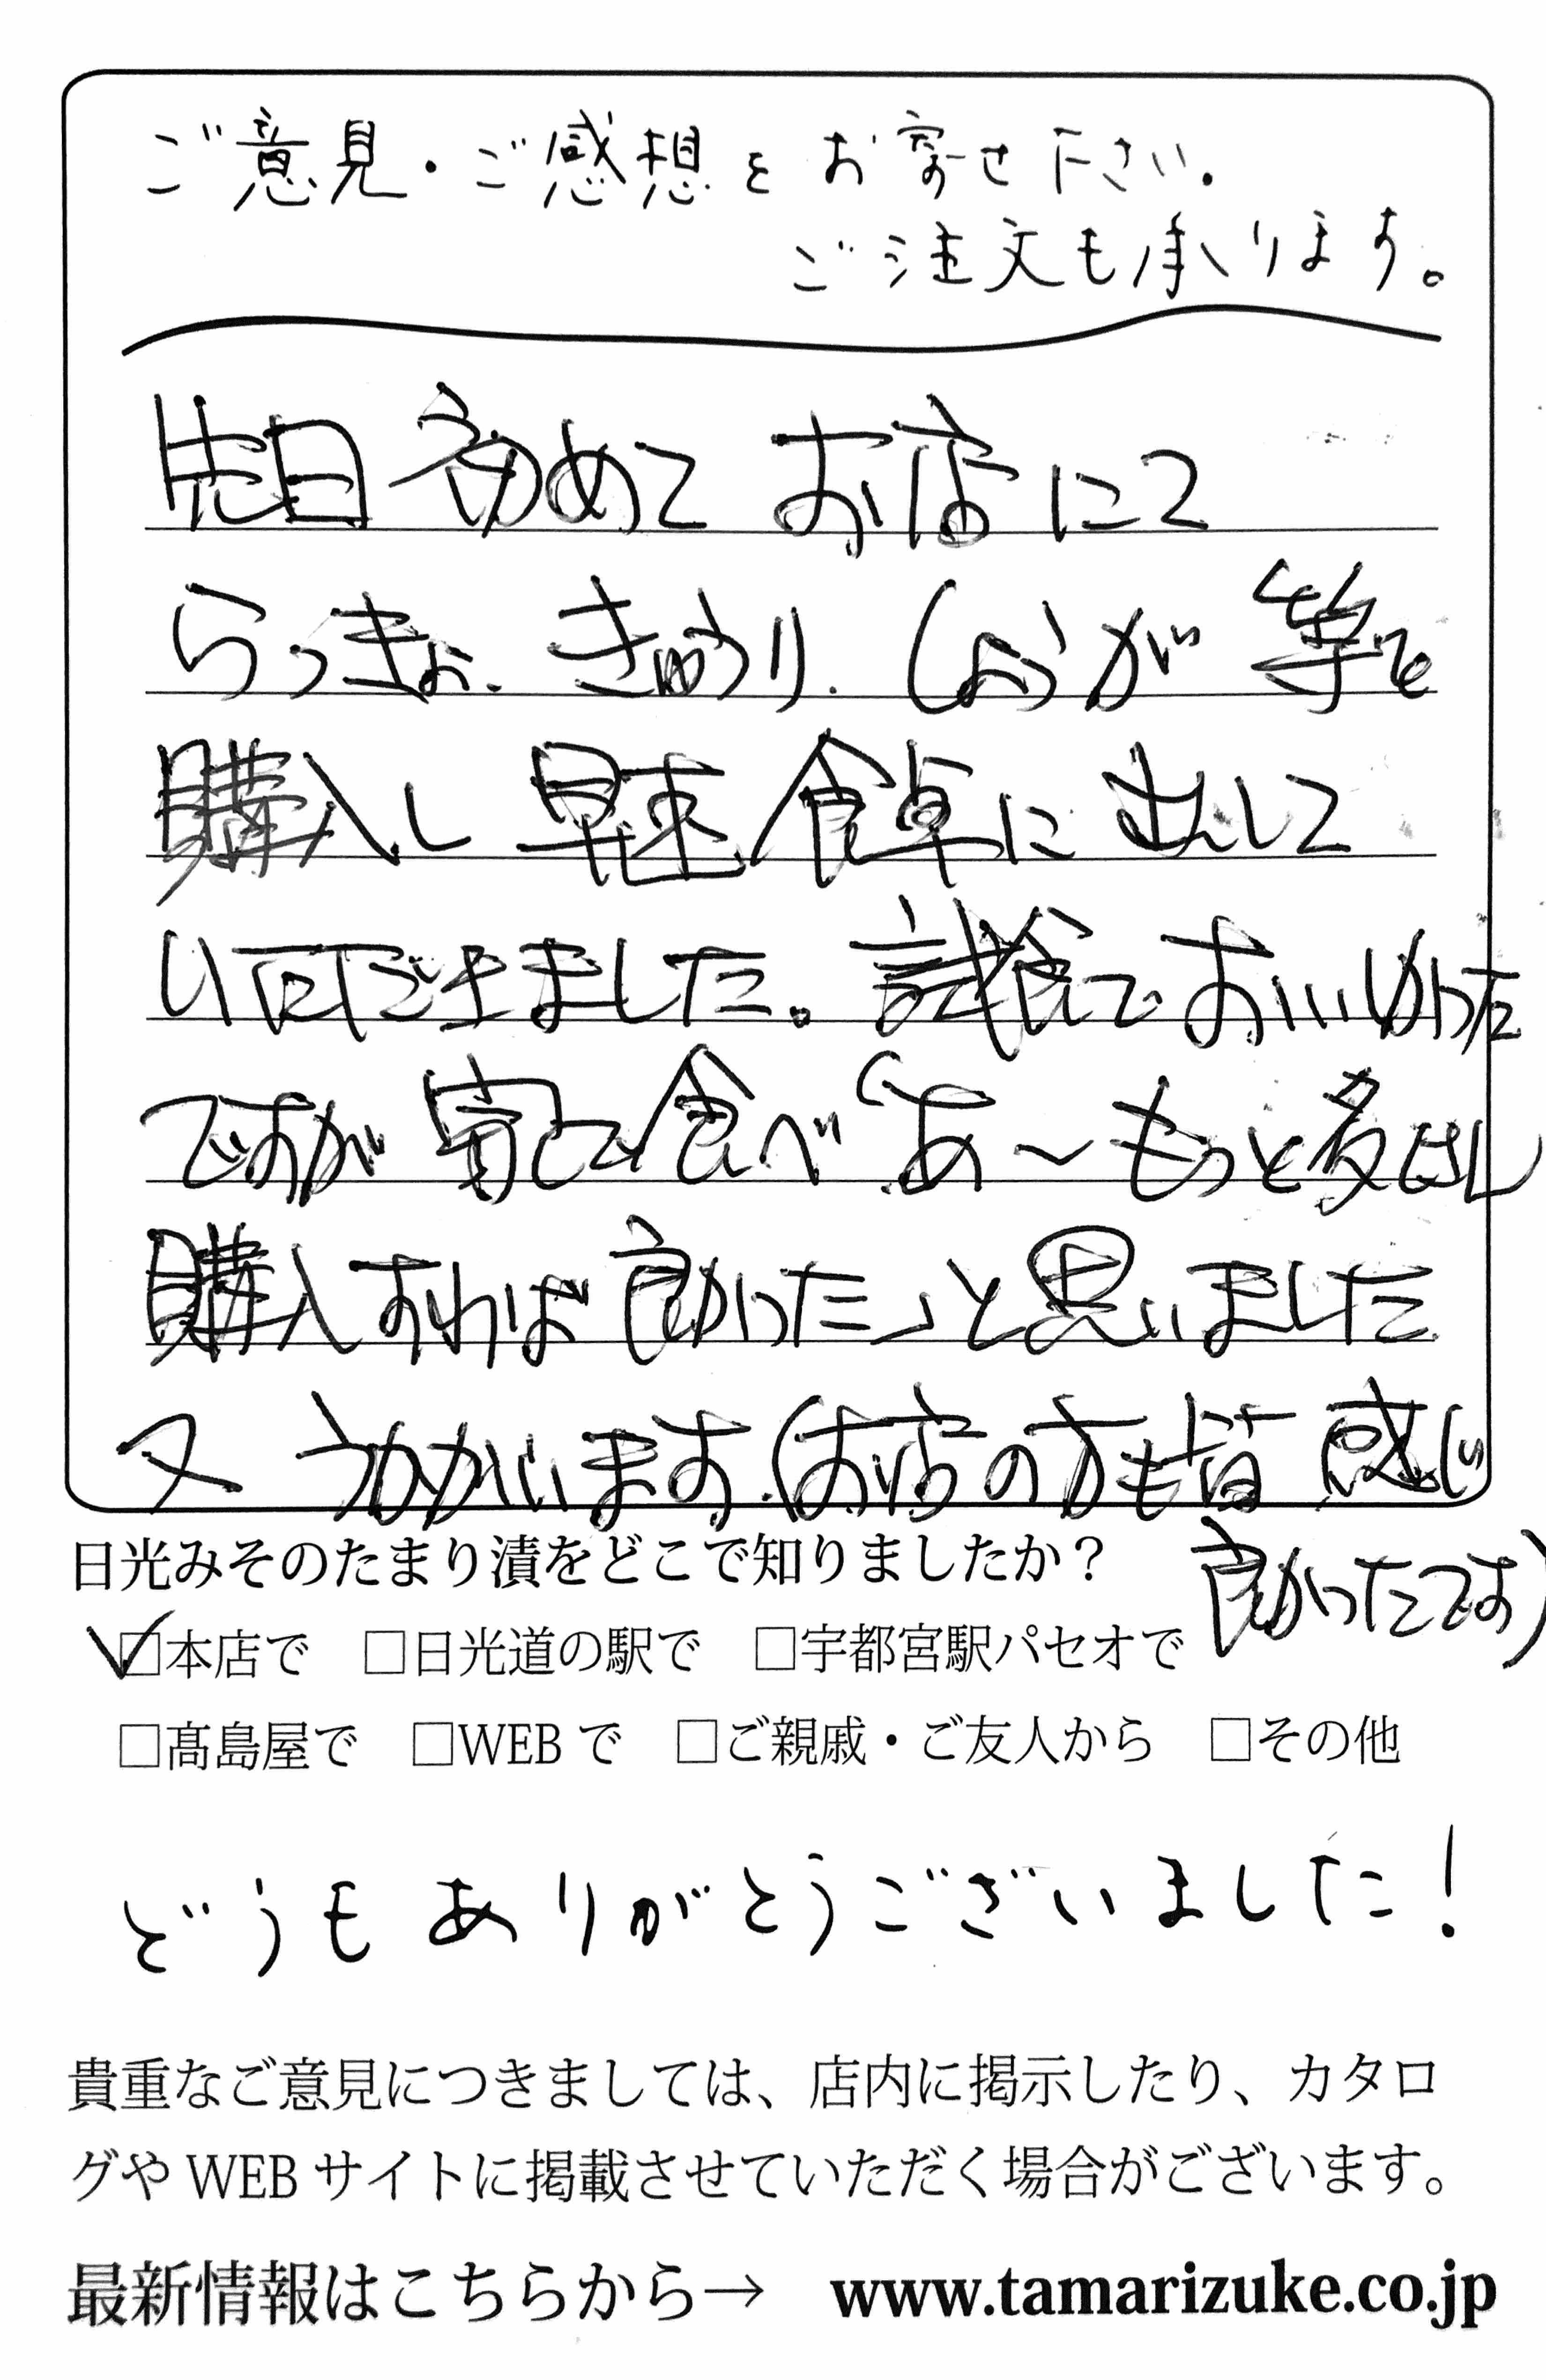 ご意見・ご感想をお寄せ下さい。
ご注文も承ります。
先日 初めて お店にて
らっきょ、きゅうり、しょうが 等を
購入し 早速 食卓に 出して
いただきました。試食でおいしかった
ですが 家で食べ「あ〜もっと多
購入すれば良かった」と思いました
又 うかがいます。(お店の方も皆 感じ
良かったです)
日光みそのたまり漬をどこで知りましたか？
☑本店で □日光道の駅で □宇都宮駅パセオで
□髙島屋で □WEBで □ご親戚・ご友人から □その他
どうもありがとうございました！
貴重なご意見につきましては、店内に掲示したり、カタロ
グやWEBサイトに掲載させていただく場合がございます。
最新情報はこちらから→ www.tamarizuke.co.jp